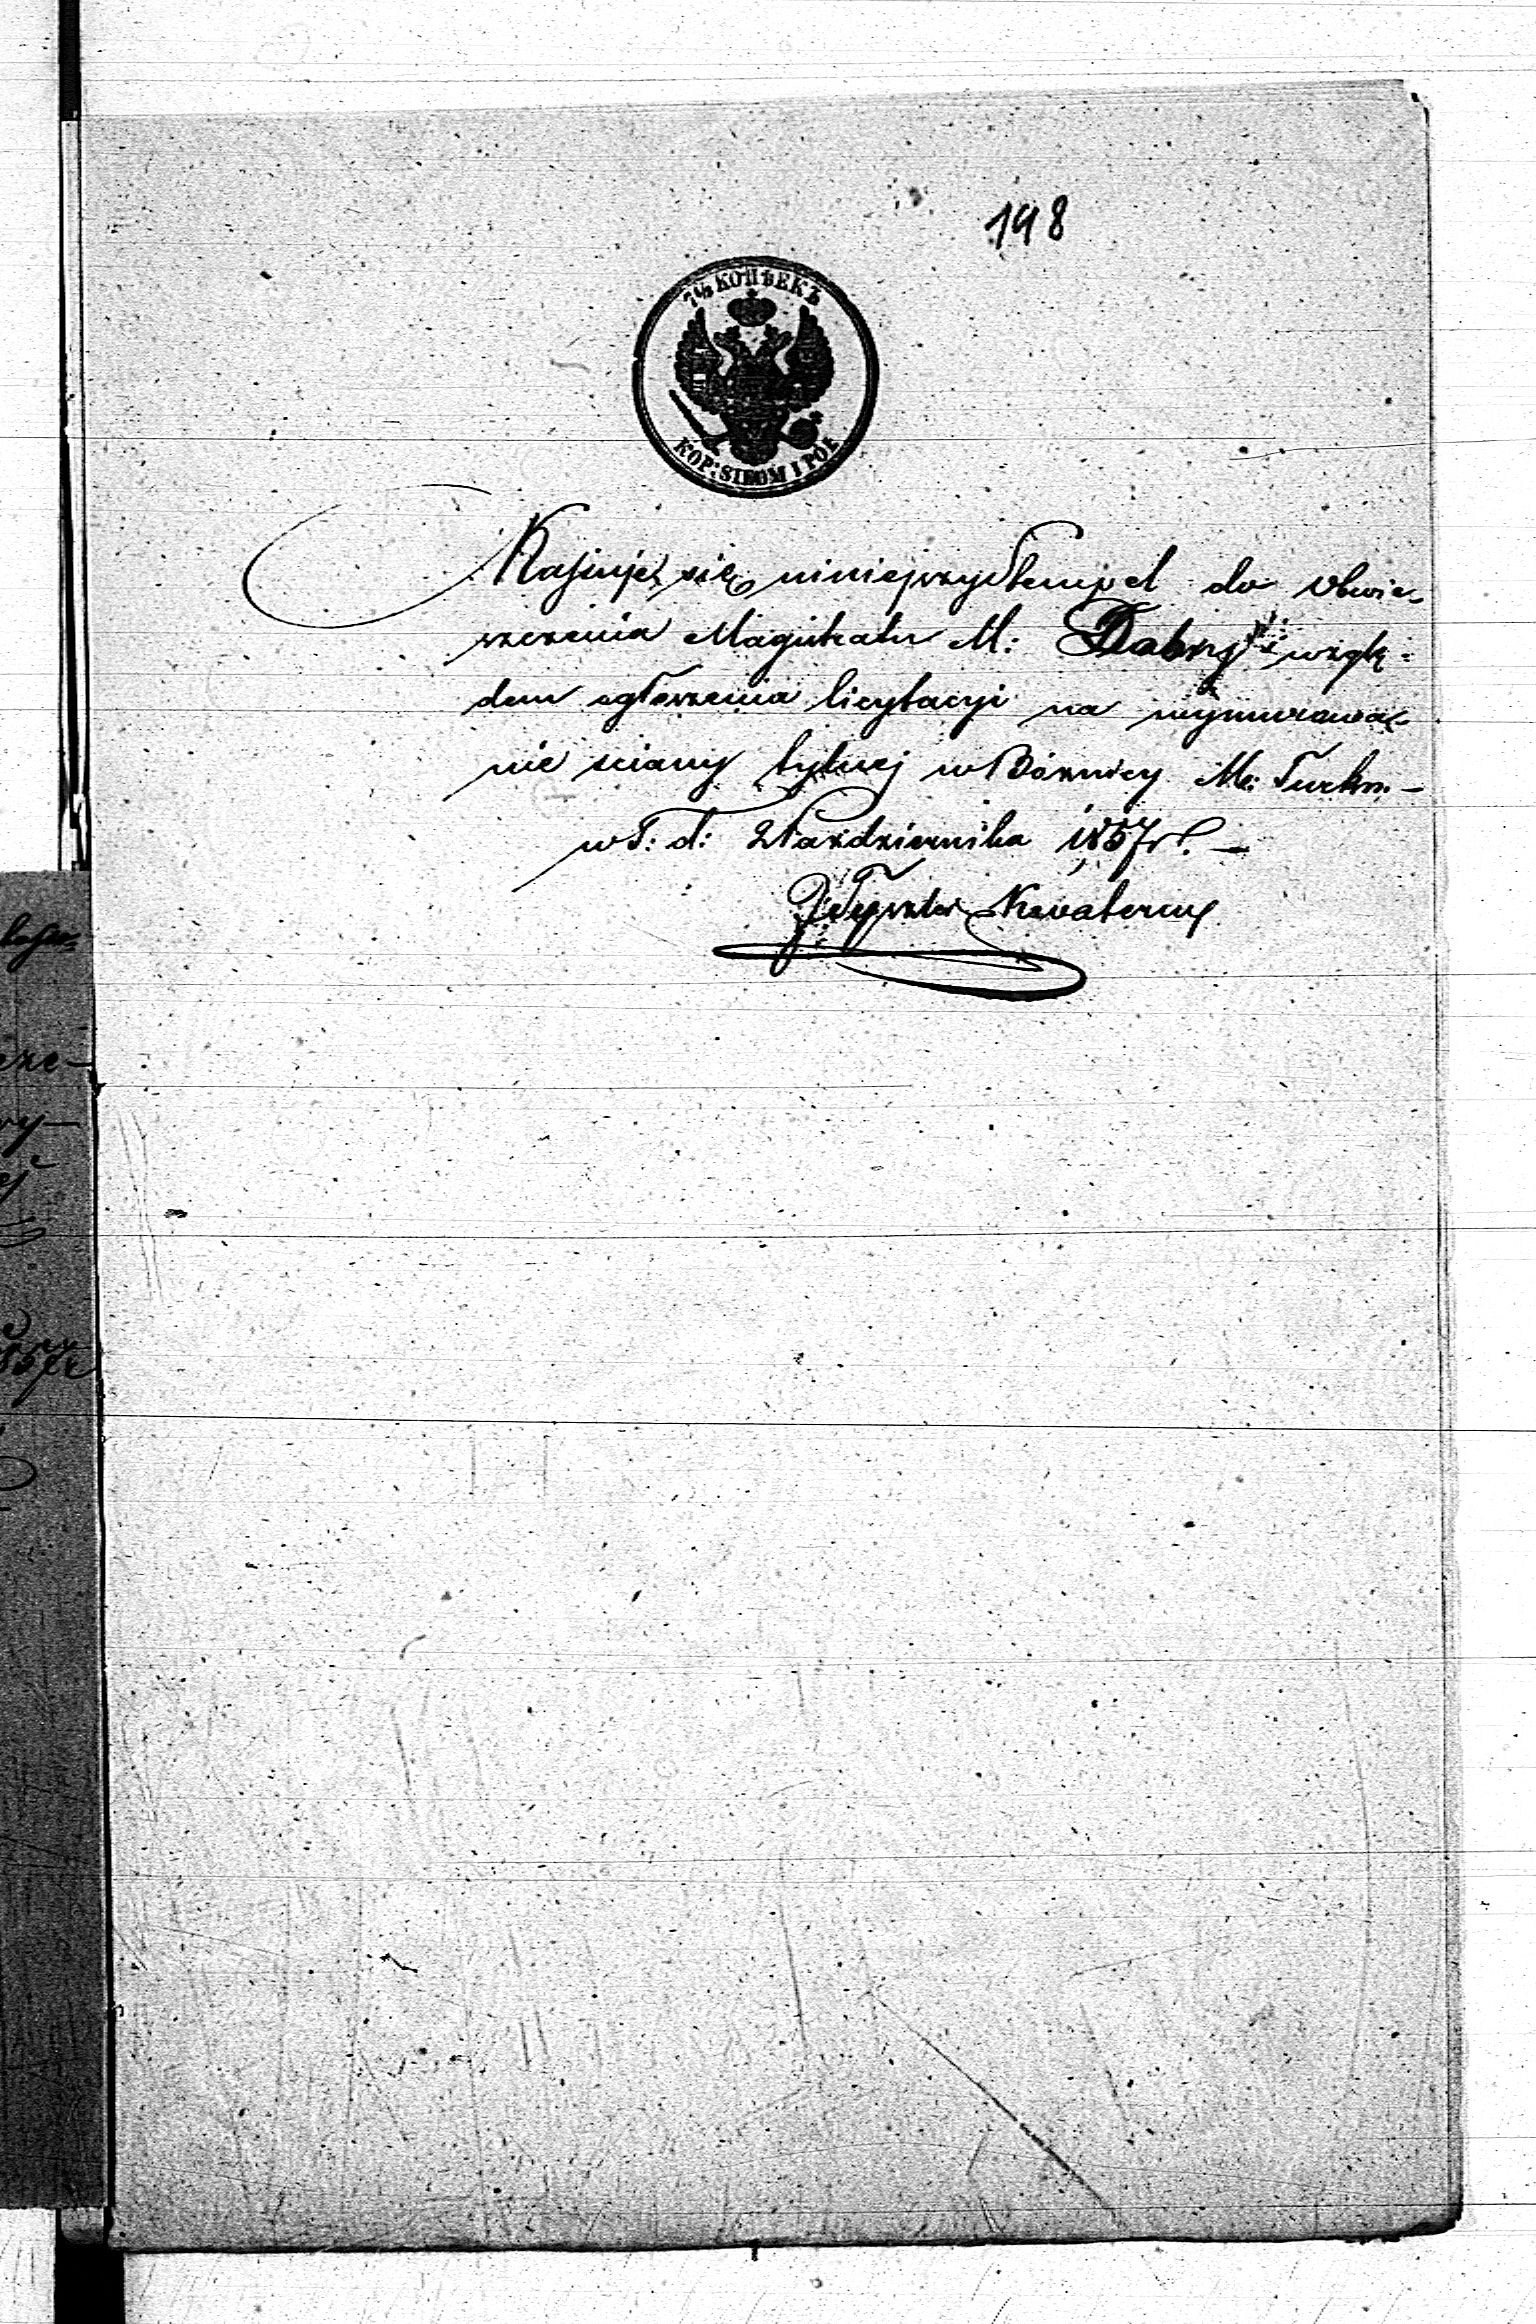 198
7½ КОПѢЕКЪ
KOP: SIEDM I PÓŁ
Kasuje się niniejszy Stempel do Obwie-
szczenia Magistratu M: Dabry wzglę-
dem ogłoszenia licytacyi na wymurowa-
nie sciany tylnej w Bóżnicy M: Turku –
w T. d: 2 Października 1857 r. –